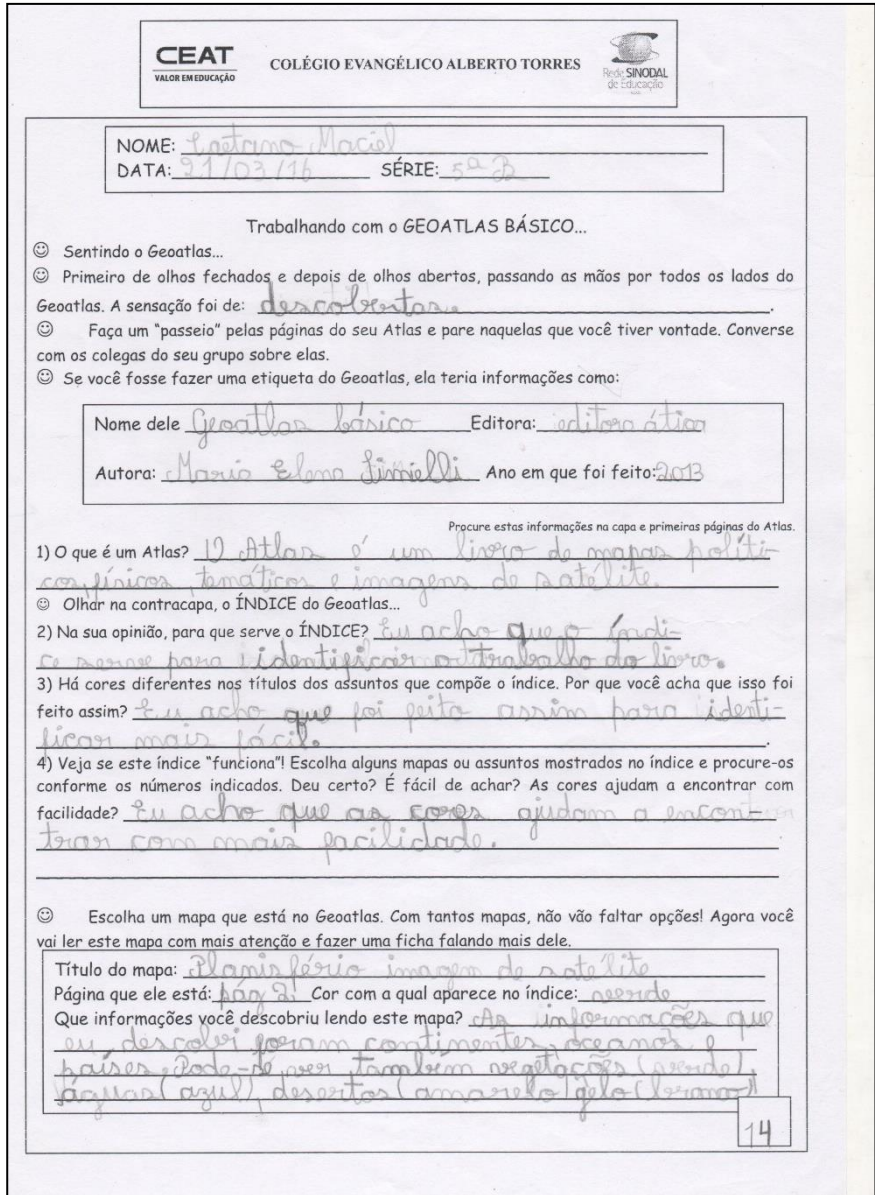 CEAT
VALOR EM EDUCAÇÃO
COLÉGIO EVANGÉLICO ALBERTO TORRES
Rede SINODAL
de Educação
NOME: Caetano Maciel
DATA: 21/03/16 SÉRIE: 5ª B
Trabalhando com o GEOATLAS BÁSICO...
☺ Sentindo o Geoatlas...
☺ Primeiro de olhos fechados e depois de olhos abertos, passando as mãos por todos os lados do
Geoatlas. A sensação foi de: descobertas.
☺ Faça um "passeio" pelas páginas do seu Atlas e pare naquelas que você tiver vontade. Converse
com os colegas do seu grupo sobre elas.
☺ Se você fosse fazer uma etiqueta do Geoatlas, ela teria informações como:
Nome dele Geoatlas básico Editora: editora ática
Autora: Maria Elena Simielli Ano em que foi feito: 2013
Procure estas informações na capa e primeiras páginas do Atlas.
1) O que é um Atlas? O Atlas é um livro de mapas políti-
cos, físicos, temáticos e imagens de satélite.
☺ Olhar na contracapa, o ÍNDICE do Geoatlas...
2) Na sua opinião, para que serve o ÍNDICE? Eu acho que o índi-
ce serve para identificar o trabalho do livro.
3) Há cores diferentes nos títulos dos assuntos que compõe o índice. Por que você acha que isso foi
feito assim? Eu acho que foi feito assim para identi-
ficar mais fácil.
4) Veja se este índice "funciona"! Escolha alguns mapas ou assuntos mostrados no índice e procure-os
conforme os números indicados. Deu certo? É fácil de achar? As cores ajudam a encontrar com
facilidade? Eu acho que as cores ajudam a encont-
trar com mais facilidade.
☺ Escolha um mapa que está no Geoatlas. Com tantos mapas, não vão faltar opções! Agora você
vai ler este mapa com mais atenção e fazer uma ficha falando mais dele.
Título do mapa: Planisfério imagem de satélite
Página que ele está: pág 2. Cor com a qual aparece no índice: verde
Que informações você descobriu lendo este mapa? As informações que
eu descobri foram continentes, oceanos e
países. Pode-se ver também vegetações (verde),
águas (azul), desertos (amarelo) gelo (branco)
14